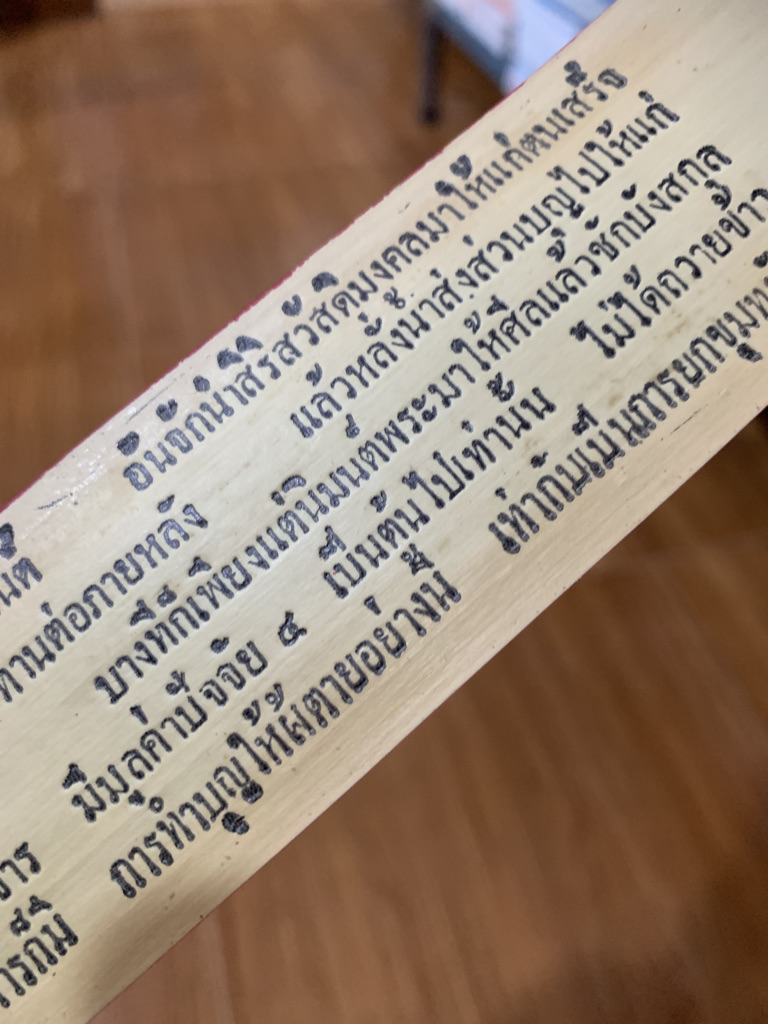 อันจักนำสิริสวัสดิมงคลมาให้แก่ตนเสร็จ
ทานต่อภายหลัง แล้วหลั่งน้ำส่งส่วนบุญไปให้แก่
บางทีก็เพียงแต่นิมนต์พระมาให้ศีลแล้วชักบังสกุล
มีมูลค่าปัจจัย ๔ เป็นต้นไปเท่านั้น ไม่ได้ถวายข้าว
การทำบุญให้ผีตายอย่างนี้ เท่ากับเป็นการยกขุม